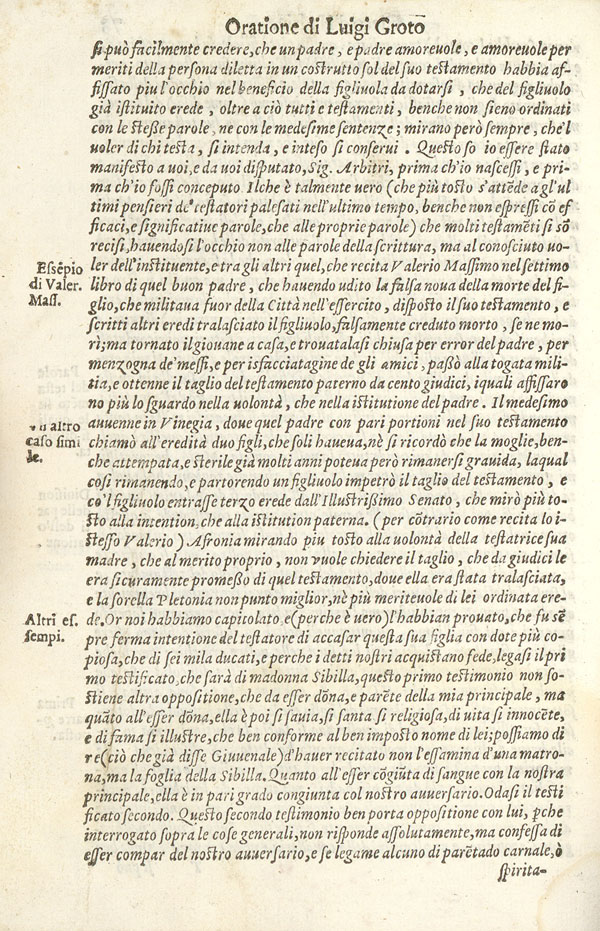 Oratione di Luigi Groto
si può facilmente credere, che un padre, e padre amoreuole, e amoreuole per
meriti della persona diletta in un costrutto sol del suo testamento habbia af-
fissato piu l'occhio nel beneficio della figliuola da dotarsi, che del figliuolo
già istituito erede, oltre a ciò tutti e testamenti, benche non sieno ordinati
con le steße parole, ne con le medesime sentenze; mirano però sempre, che'l
uoler di chi testa, si intenda, e inteso si conserui. Questo so io essere stato
manifesto a uoi, e da uoi disputato, Sig. Arbitri, prima ch'io nascessi, e pri-
ma ch'io fossi conceputo. Ilche è talmente uero (che più tosto s'attēde agl'ul
timi pensieri de' testatori palesati nell'ultimo tempo, benche non espressi cō ef
ficaci, e significatiue parole, che alle proprie parole) che molti testamēti si sō
recisi, hauendosi l'occhio non alle parole della scrittura, ma al conosciuto uo-
Essēpio
di Valer.
Mass.
ler dell'instituente, e tra gli altri quel, che recita Valerio Massimo nel settimo
libro di quel buon padre, che hauendo udito la falsa noua della morte del fi-
glio, che militaua fuor della Città nell'essercito, disposto il suo testamento, e
scritti altri eredi tralasciato il figliuolo, falsamente creduto morto, se ne mo-
rì; ma tornato il giouane a casa, e trouatalasi chiusa per error del padre, per
menzogna de' messi, e per isfacciatagine de gli amici, paßò alla togata mili-
tia, e ottenne il taglio del testamento paterno da cento giudici, iquali affissaro
no più lo sguardo nella uolontà, che nella istitutione del padre. Il medesimo
Vn altro
caso simi
le.
auuenne in Vinegia, doue quel padre con pari portioni nel suo testamento
chiamò all'eredità duo figli, che soli haueua, nè si ricordò che la moglie, ben-
che attempata, e sterile già molti anni poteua però rimanersi grauida, laqual
cosi rimanendo, e partorendo un figliuolo impetrò il taglio del testamento, e
co'l figliuolo entrasse terzo erede dall'Illustrißimo Senato, che mirò più to-
sto alla intention, che alla istitution paterna. (per cōtrario come recita lo i-
stesso Valerio) Afronia mirando piu tosto alla uolontà della testatrice sua
madre, che al merito proprio, non uuole chiedere il taglio, che da giudici le
era sicuramente promeßo di quel testamento, doue ella era stata tralasciata,
e la sorella Pletonia non punto miglior, nè più meriteuole di lei ordinata ere-
Altri es.
sempi.
de. Or noi habbiamo capitolato e (perche è uero) l'habbian prouato, che fu sē
pre ferma intentione del testatore di accasar questa sua figlia con dote più co-
piosa, che di sei mila ducati, e perche i detti nostri acquistano fede, legasi il pri
mo testificato, che sarà di madonna Sibilla, questo primo testimonio non so-
stiene altra oppositione, che da esser dōna, e parēte della mia principale, ma
quāto all'esser dōna, ella è poi si sauia, si santa si religiosa, di uita si innocēte,
e di fama si illustre, che ben conforme al ben imposto nome di lei; possiamo di
re (ciò che già disse Giuuenale) d'hauer recitato non l'essamina d'una matro-
na, ma la foglia della Sibilla. Quanto all'esser cōgiūta di sangue con la nostra
principale, ella è in pari grado congiunta col nostro auuersario. Odasi il testi
ficato secondo. Questo secondo testimonio ben porta oppositione con lui, ꝑche
interrogato sopra le cose generali, non risponde assolutamente, ma confessa di
esser compar del nostro auuersario, e se legame alcuno di parētado carnale, ò
spirita-